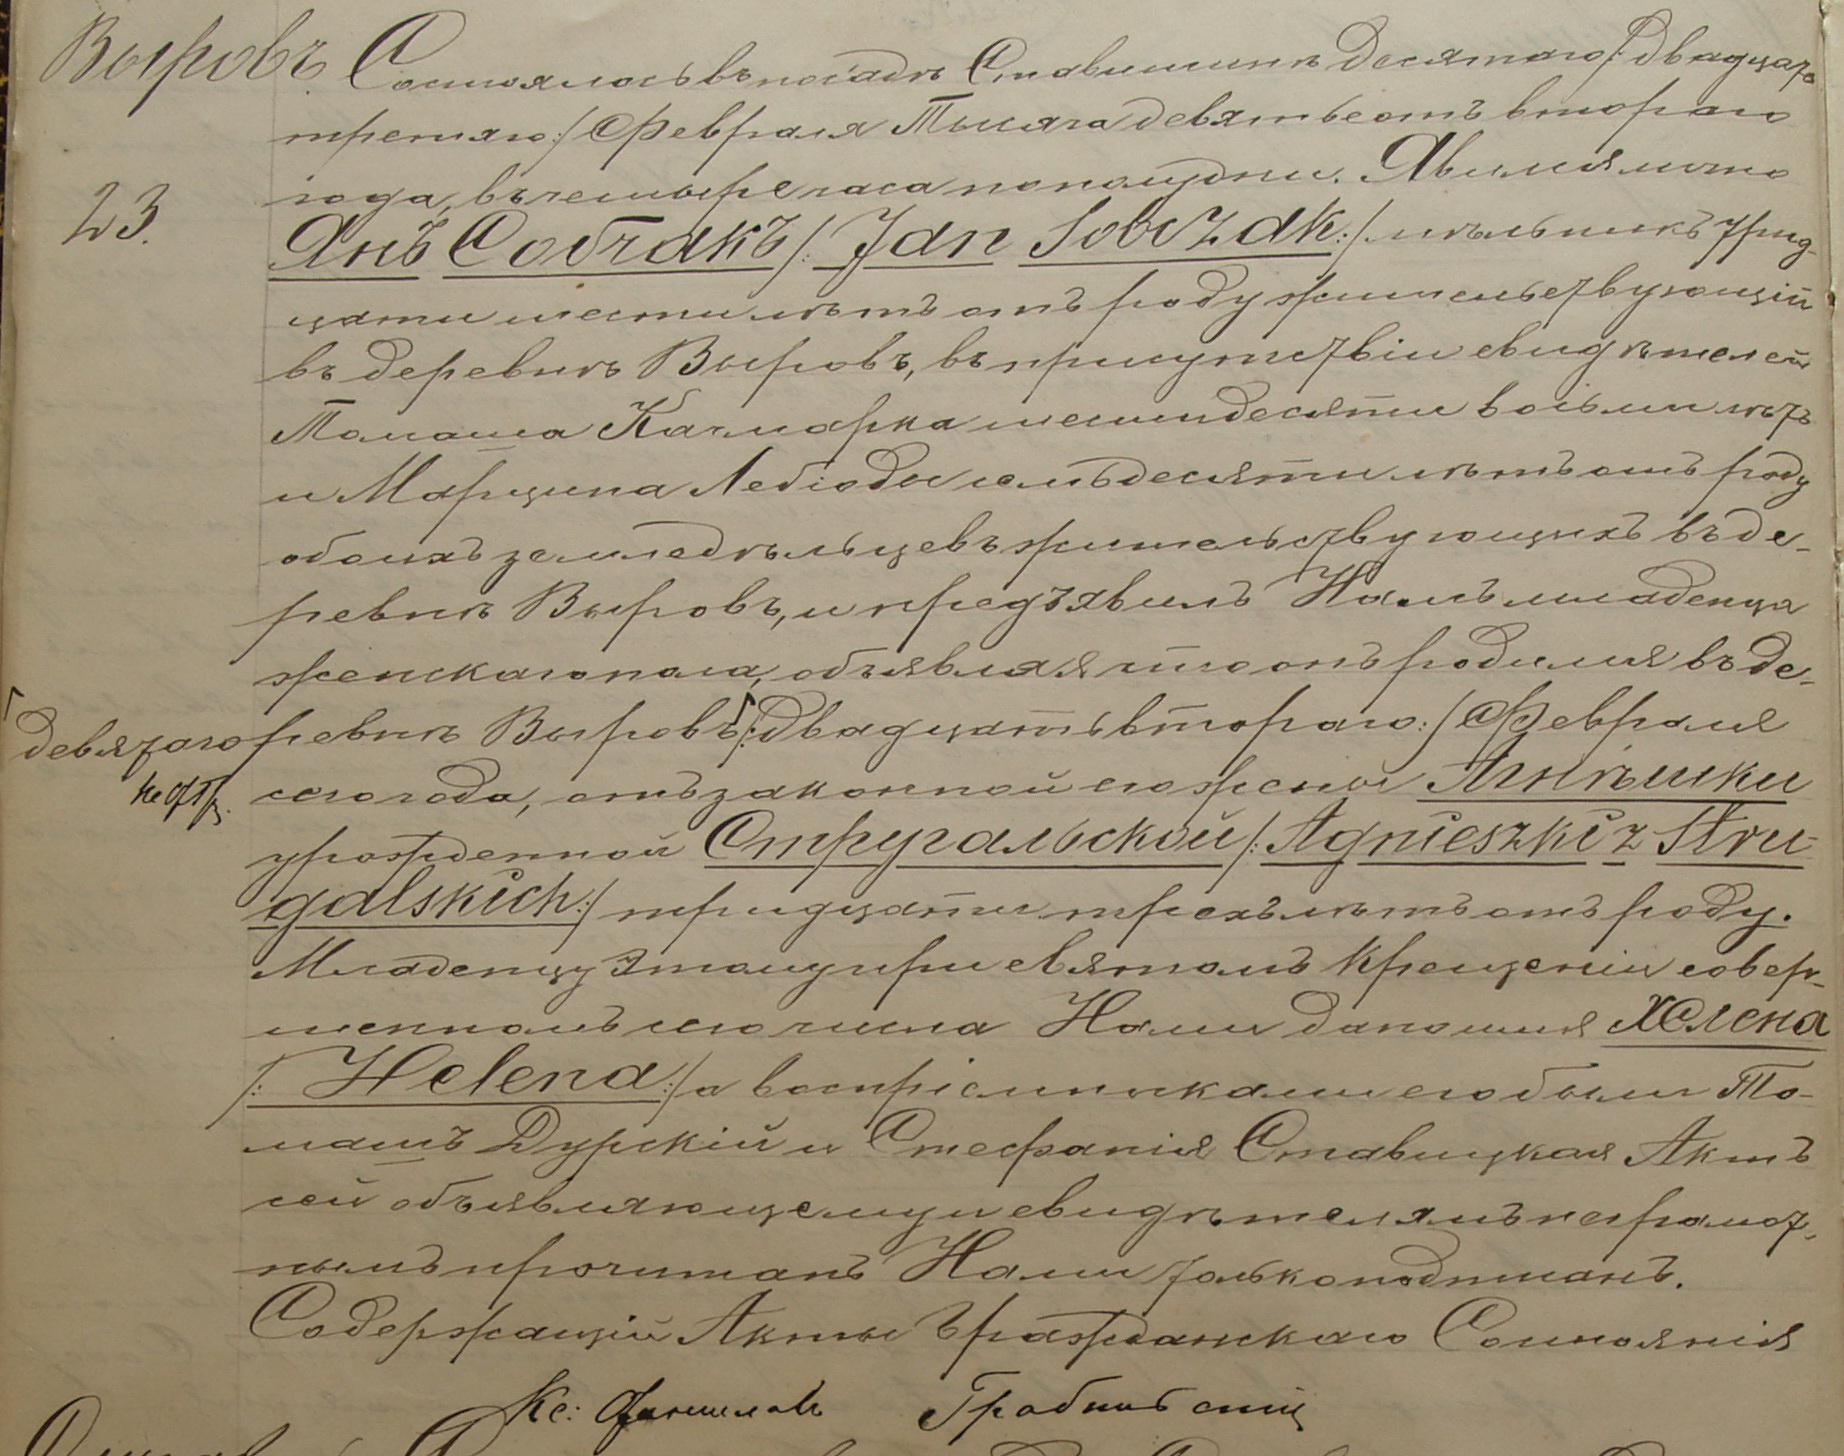 Выровъ.
Состоялось въ посадѣ Ставишинѣ десятаго /: двадцать
третяго :/ Февраля Тысяча девятьсотъ втораго
года, въ четыре часа пополудни. Явился лично
23.
Янъ Собчакъ /: Jan Sobczak :/ мѣльникъ трид-
цати шести лѣтъ отъ роду жительствующій
въ деревнѣ Выровъ, въ присутствіи свидѣтелей
Томаша Качмарка шестидесяти восьми лѣтъ
и Марцина Лебіоды семьдесяти лѣтъ отъ роду
обоихъ земледѣльцевъ жительствующихъ въ де-
ревнѣ Выровъ, и предъявилъ Намъ младенца
женскаго пола, объявляя что онъ родился въ де-
ревнѣ Выровъ Г /: двадцать втораго :/ Февраля
Г девятаго
сего года, отъ законной его жены Агнѣшки
урожденной Стругальской /: Agnieszki z Stru-
galskich :/ тридцати трехъ лѣтъ отъ роду.
Младенцу этому при святомъ крещеніи совер-
шенномъ сего числа Нами дано имя Хелена
/: Helena :/ а воспріемниками его были То-
машъ Дурскій и Стефанія Ставицкая Актъ
сей объявляющему и свидѣтелямъ неграмот-
нымъ прочитанъ Нами только подписанъ.
Содержащій Акты Гражданскаго Состоянія
Кс: